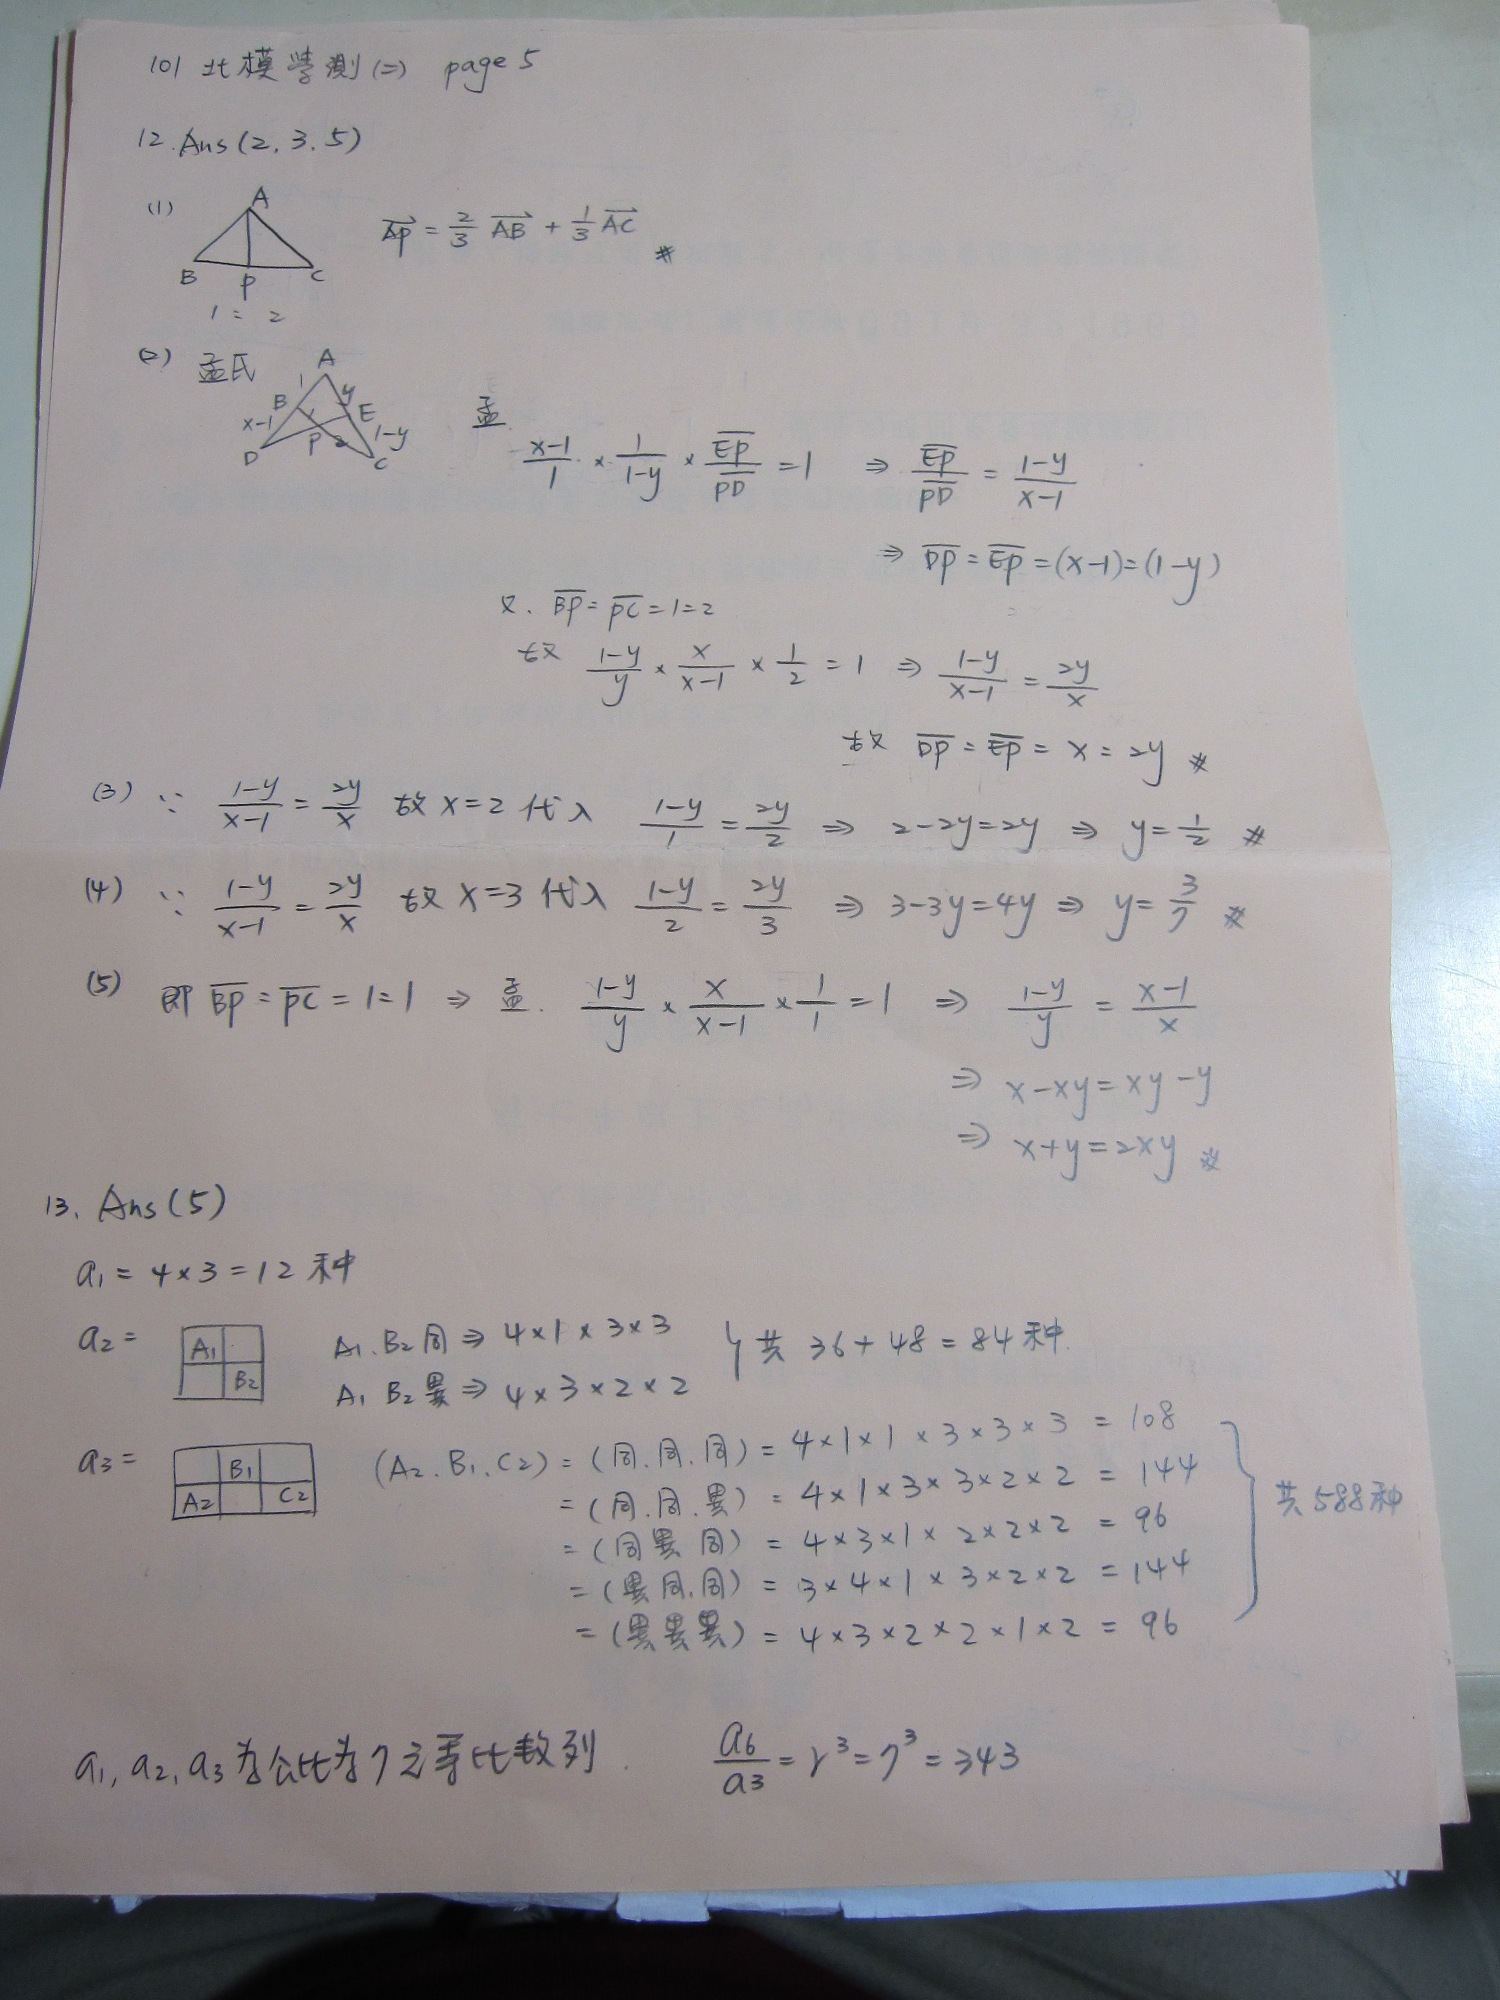 101 北模學測(二) page 5
12. Ans(2, 3. 5)
(1) A B P C 1 = 2 AP = 2/3 AB + 1/3 AC #
(2) 孟氏 A 1 y B E x-1 1 P 2 1-y D C
孟 (x-1)/1 × 1/(1-y) × EP/PD = 1 ⇒ EP/PD = (1-y)/(x-1)
⇒ DP = EP = (x-1) = (1-y)
又. BP = PC = 1 = 2
故 (1-y)/y × x/(x-1) × 1/2 = 1 ⇒ (1-y)/(x-1) = 2y/x
故 DP = EP = x = 2y #
(3) ∵ (1-y)/(x-1) = 2y/x 故 x=2 代入 (1-y)/1 = 2y/2 ⇒ 2-2y=2y ⇒ y=1/2 #
(4) ∵ (1-y)/(x-1) = 2y/x 故 x=3 代入 (1-y)/2 = 2y/3 ⇒ 3-3y=4y ⇒ y=3/7 #
(5) 即 BP = PC = 1=1 ⇒ 孟. (1-y)/y × x/(x-1) × 1/1 = 1 ⇒ (1-y)/y = (x-1)/x
⇒ x-xy=xy-y
⇒ x+y=2xy #
13. Ans(5)
a1 = 4×3=12種
a2 = A1 B2 A1.B2同 ⇒ 4×1×3×3
A1 B2異 ⇒ 4×3×2×2
共 36+48=84種
a3 = B1 A2 C2 (A2.B1.C2) = (同.同.同) = 4×1×1×3×3×3 = 108
= (同.同.異) = 4×1×3×3×2×2 = 144
= (同異同) = 4×3×1×2×2×2 = 96
= (異同.同) = 3×4×1×3×2×2 = 144
= (異異異) = 4×3×2×2×1×2 = 96
共588種
a1, a2, a3 為公比為7之等比數列. a6/a3 = r³=7³=343